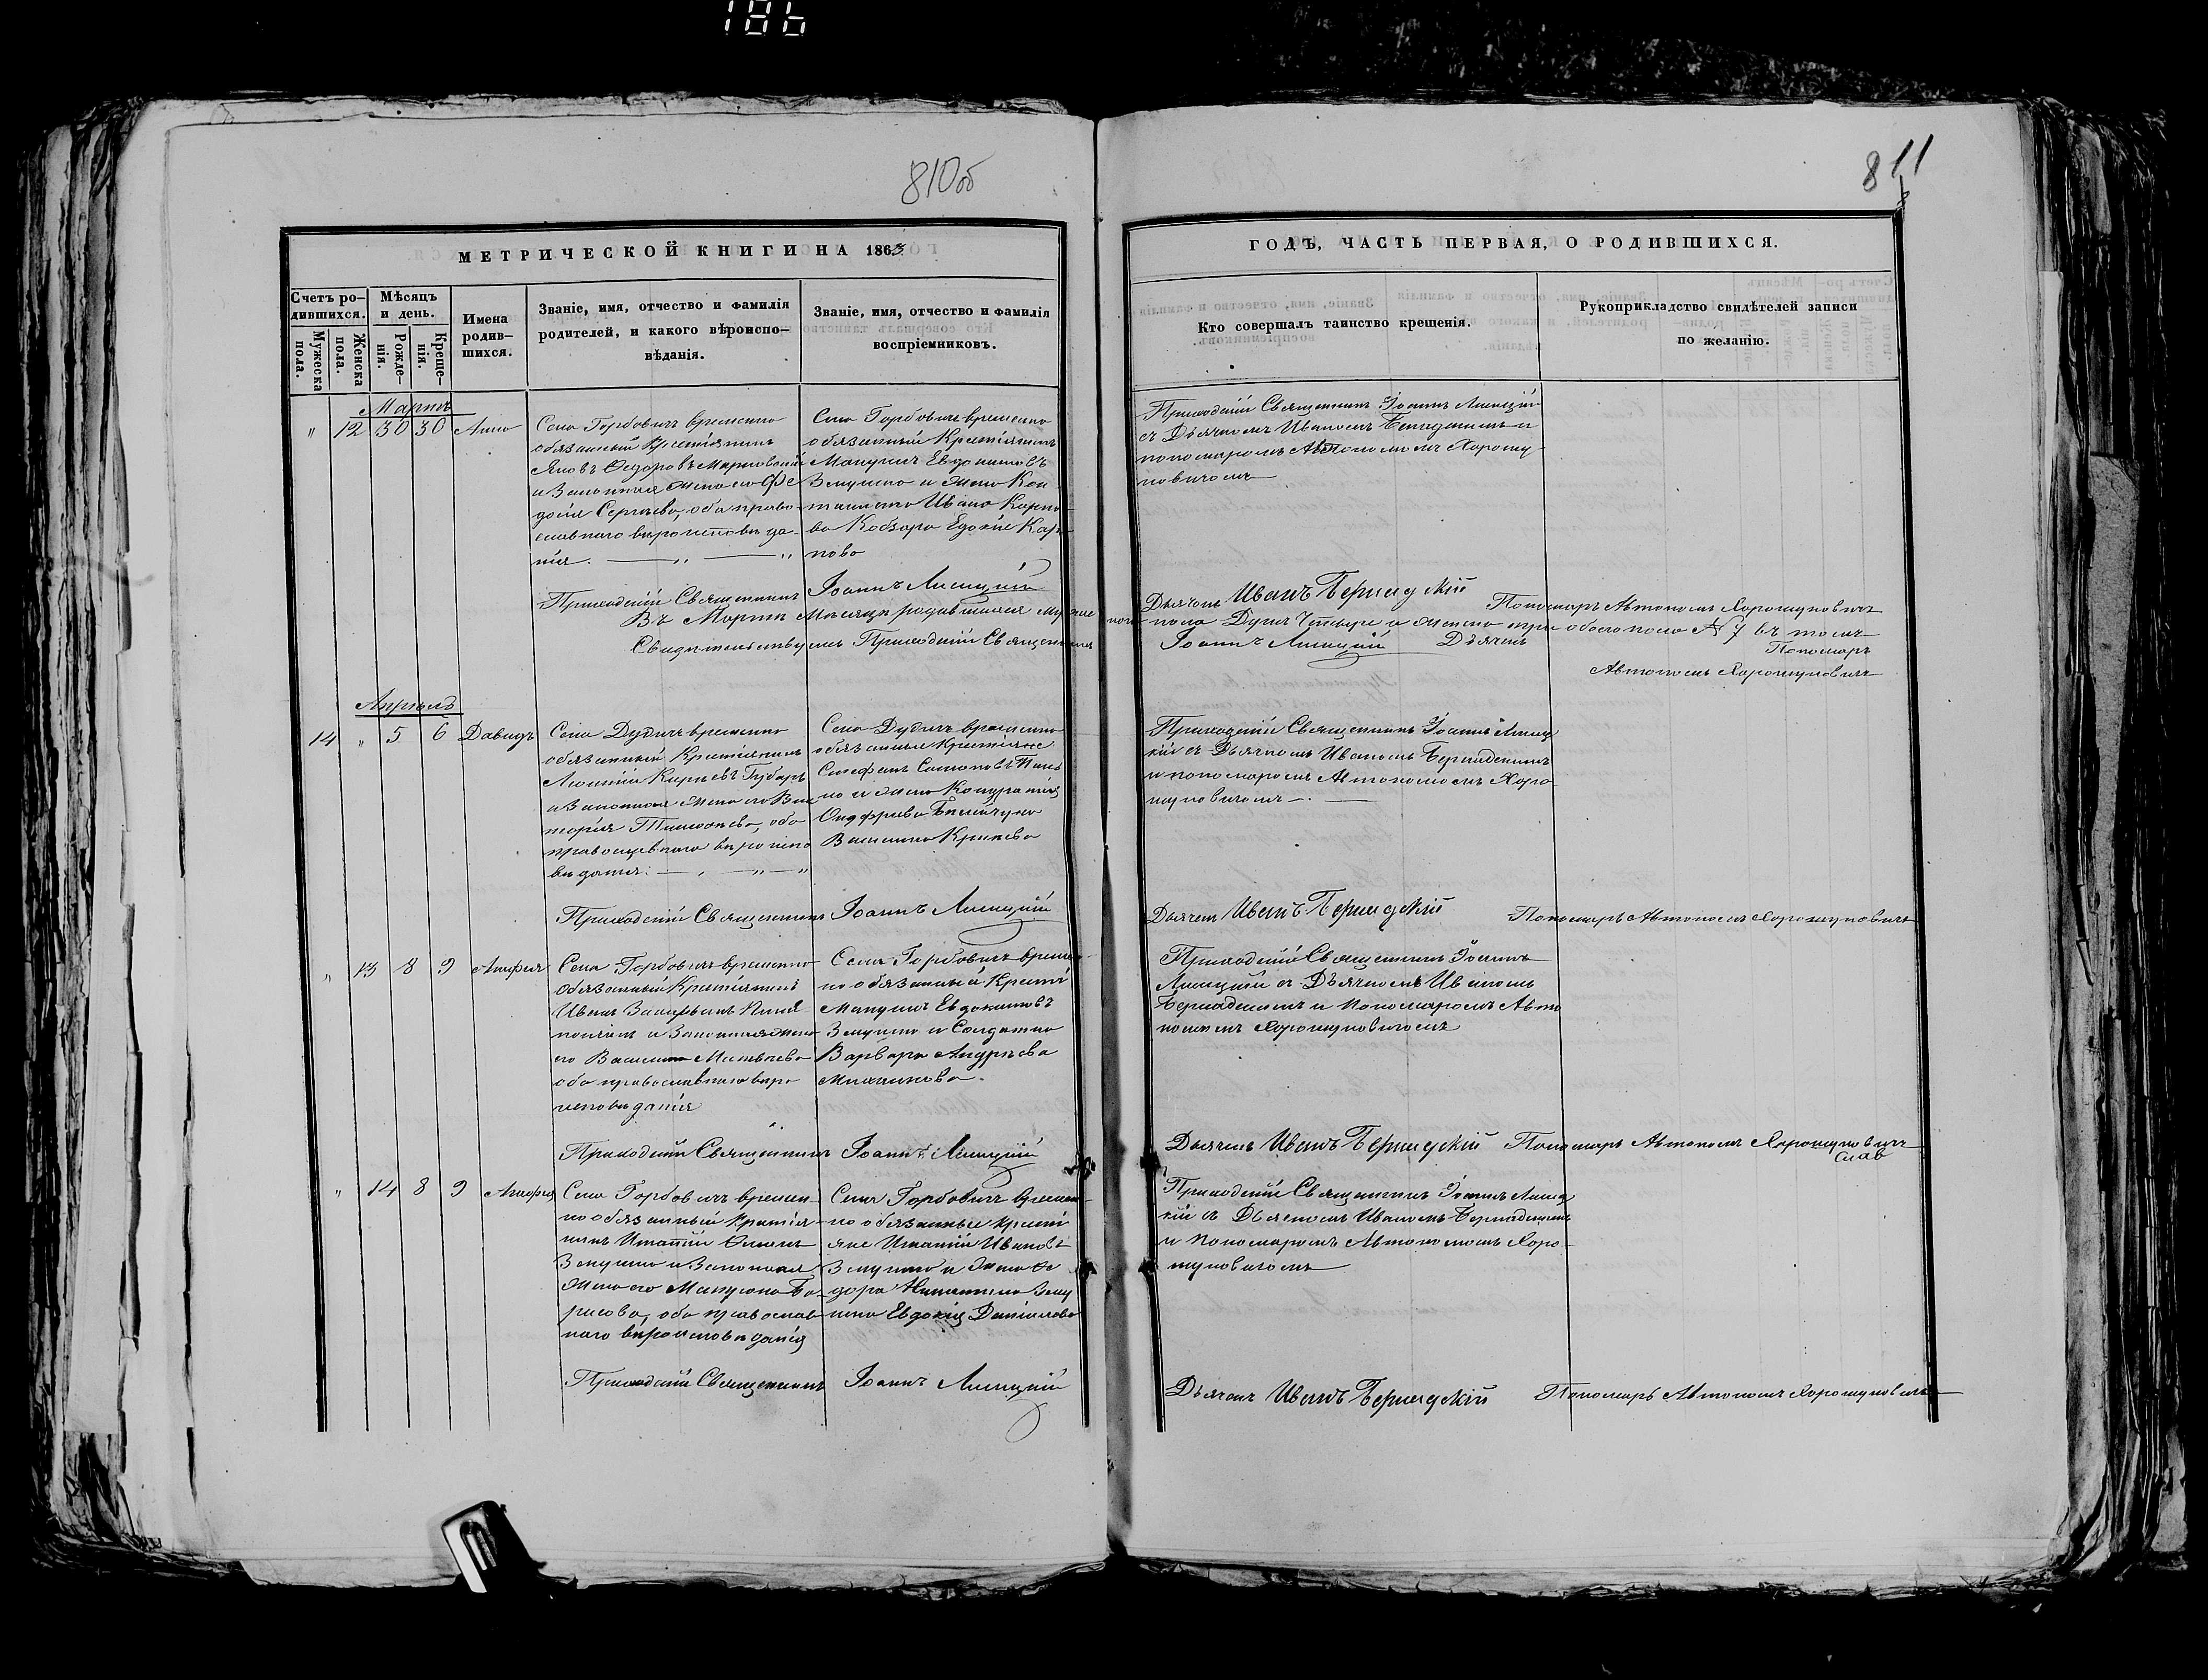 186
810об
811
МЕТРИЧЕСКОЙ КНИГИ НА 1863
Счетъ ро-
дившихся.
Мужеска
пола.
Женска
пола.
Мѣсяцъ
и день.
Рожде-
нія.
Креще-
нія.
Имена
родив-
шихся.
Званіе, имя, отчество и фамилія
родителей, и какого вѣроиспо-
вѣданія.
Званіе, имя, отчество и фамилія
воспріемниковъ.
ГОДЪ, ЧАСТЬ ПЕРВАЯ, О РОДИВШИХСЯ.
Кто совершалъ таинство крещенія.
Рукоприкладство свидѣтелей записи
по желанію.
Мартъ
" 12 30 30 Анна
Села Горбовичъ временно
обязанный Крестіянинъ
Яковъ Ѳедоровъ
и Законная жена его Ѳе
досія Сергѣева, оба право-
славнаго вѣроисповѣда-
нія.
Села Горбовичъ временно
обязанный Крестіянинъ
Евдокимовъ
и жена
Ивана Карпо
ва Кобзаря Кар
пова
Приходскій Священникъ Іоаннъ Лисицкій
съ Дьячкомъ Иваномъ и
пономаремъ Автономомъ Хорошу-
новичемъ
Приходскій Священникъ Іоаннъ Лисицкій
Дьячекъ Иванъ Бернадскій
Пономарь Автономъ Хорошуновичъ
Въ Мартѣ Мѣсяцѣ родившихся мужеска пола Душъ Четыре и женска три обоего пола № 7 въ томъ
Свидѣтельствуемъ Приходскій Священникъ Іоаннъ Лисицкій Дьячекъ
Пономарь
Автономъ Хорошуновичъ
Апрѣль
14 " 5 6 Давидъ
Села Дудичъ временно
обязанный Крестіянинъ
и Законная жена его Вик
торія Тимоѳеева, оба
православнаго вѣроиспо
вѣданія.
Села Дудичъ временно
обязанные Крестіяне
Стефанъ
и жена
Василина
Приходскій Священникъ Іоаннъ Лисиц
кій съ Дьячкомъ Иваномъ Бернадскимъ
и пономаремъ Автономомъ Хоро
шуновичемъ
Приходскій Священникъ Іоаннъ Лисицкій
Дьячекъ Иванъ Бернадскій
Пономарь Автономъ Хорошуновичъ
" 13 8 9 Агафія
Села Горбовичъ временно
обязанный Крестіянинъ
Иванъ
и Законная жена
его Василина Матвѣева
оба православнаго вѣро
исповѣданія
Села Горбовичъ времен-
но обязанный Крестія
Евдокимовъ
и Солдатка
Варвара Андреева
Приходскій Священникъ Іоаннъ
Лисицкій съ Дьячкомъ Иваномъ
Бернадскимъ и Пономаремъ Авто
номомъ Хорошуновичемъ
Приходскій Священникъ Іоаннъ Лисицкій
Дьячекъ Иванъ Бернадскій
Пономарь Автономъ Хорошуновичъ
" 14 8 9 Агафія
Села Горбовичъ времен-
но обязанный Крестія-
нинъ Игнатій
и Законная
Жена его Бо-
рисова, оба православ-
наго вѣроисповѣданія
Села Горбовичъ времен-
но обязанные Крестія
яне Игнатій Ивановъ
и жена Ѳе
дора
Евдокія Даніилова
Приходскій Священникъ Іоаннъ Лисиц
кій съ Дьячкомъ Иваномъ Бернадскимъ
и Пономаремъ Автономомъ Хоро-
шуновичемъ
Приходскій Священникъ Іоаннъ Лисицкій
Дьячекъ Иванъ Бернадскій
Пономарь Автономъ Хорошуновичъ